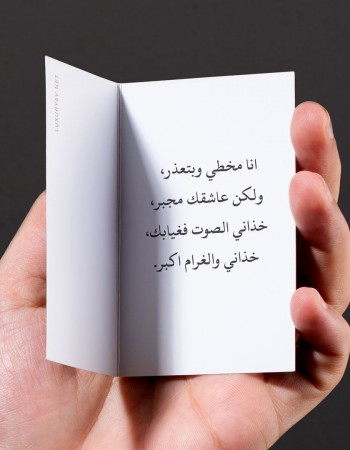 LUXURYAY.NET
انا مخطي وبتعذر،
ولكن عاشقك مجبر،
خذاني الصوت فغيابك،
خذاني والغرام اكبر.